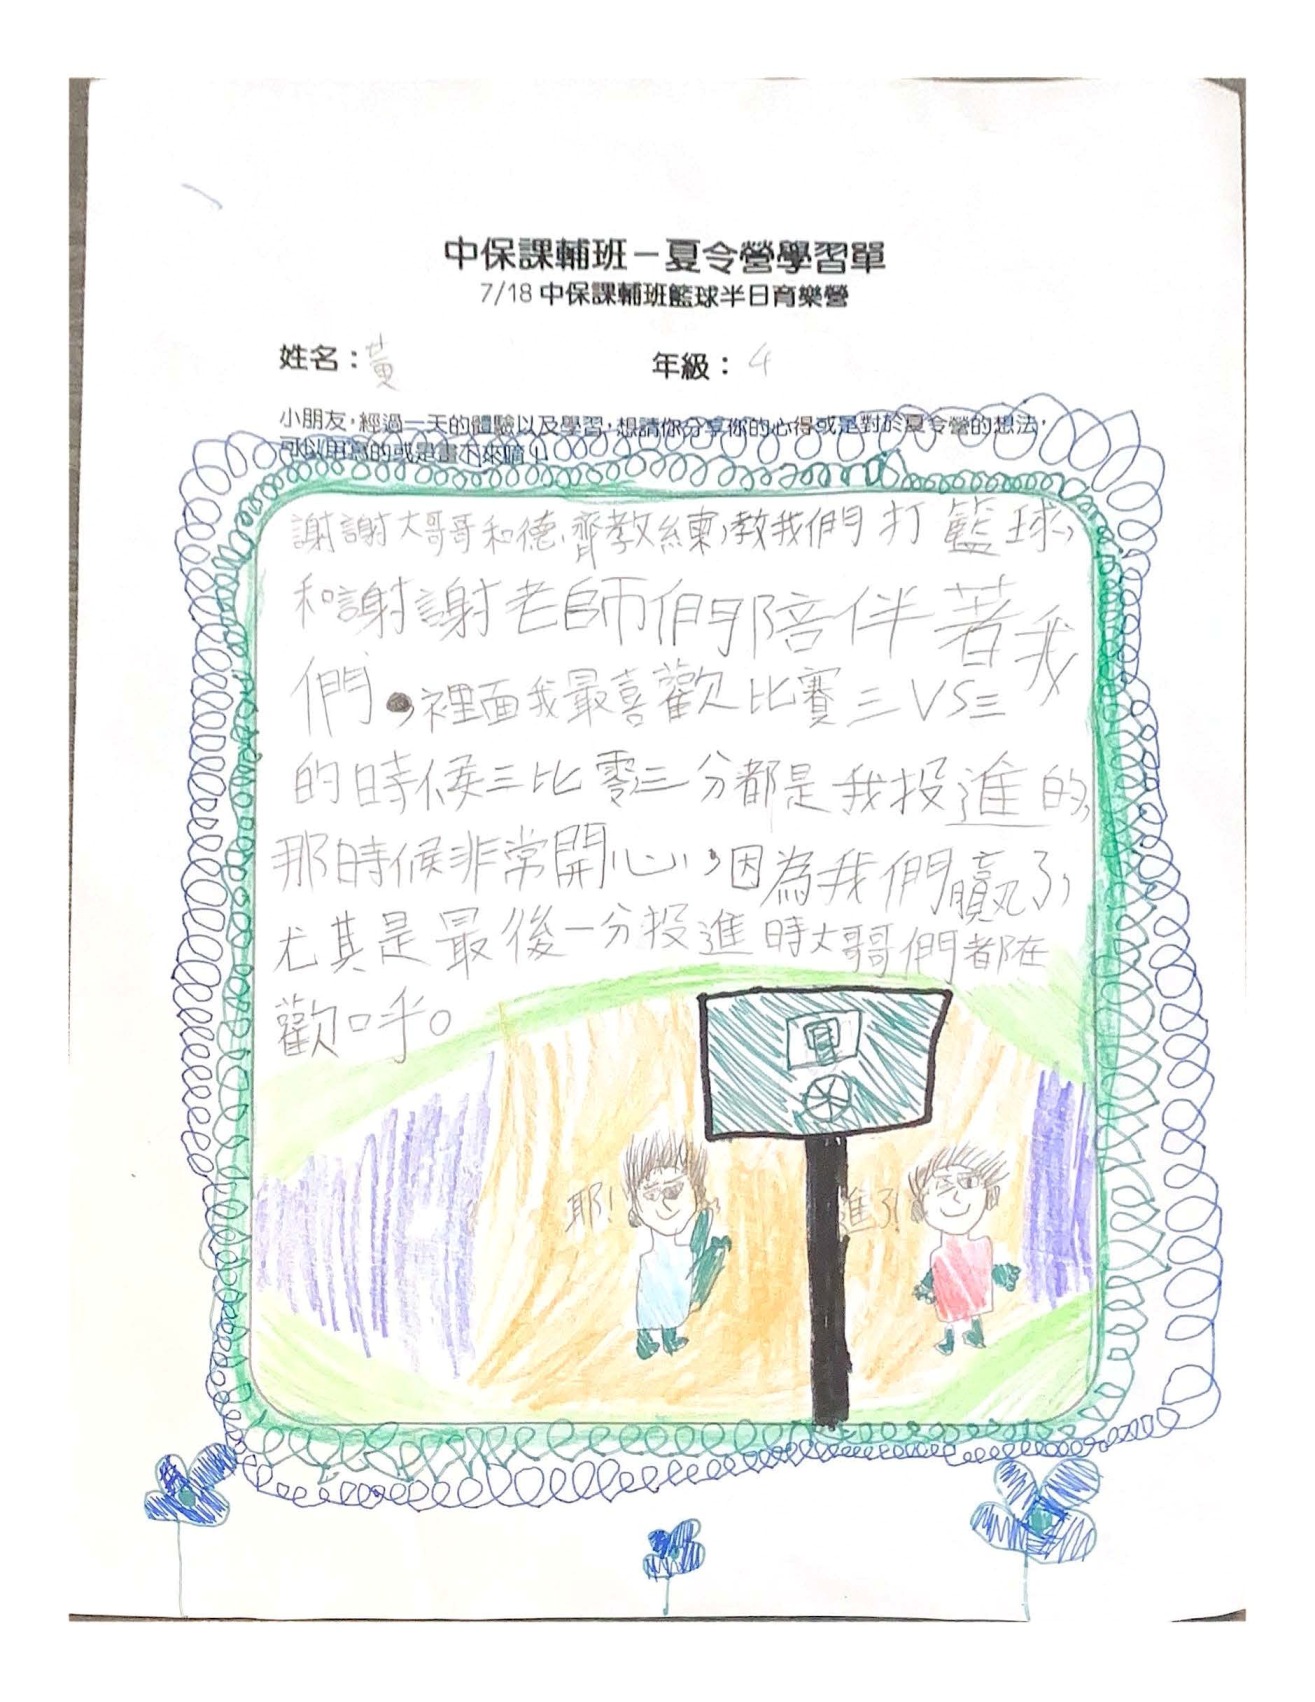 中保課輔班－夏令營學習單
7/18 中保課輔班籃球半日育樂營
姓名：黃
年級：4
小朋友，經過一天的體驗以及學習，想請你分享你的心得或是對於夏令營的想法，
可以用寫的或是畫下來唷！
謝謝大哥哥和德齊教練，教我們打籃球，
和謝謝老師們陪伴著我
們，裡面我最喜歡比賽三VS三
的時候三比零三分都是我投進的，
那時候非常開心，因為我們贏了，
尤其是最後一分投進時大哥哥們都在
歡呼。
耶！
進了！